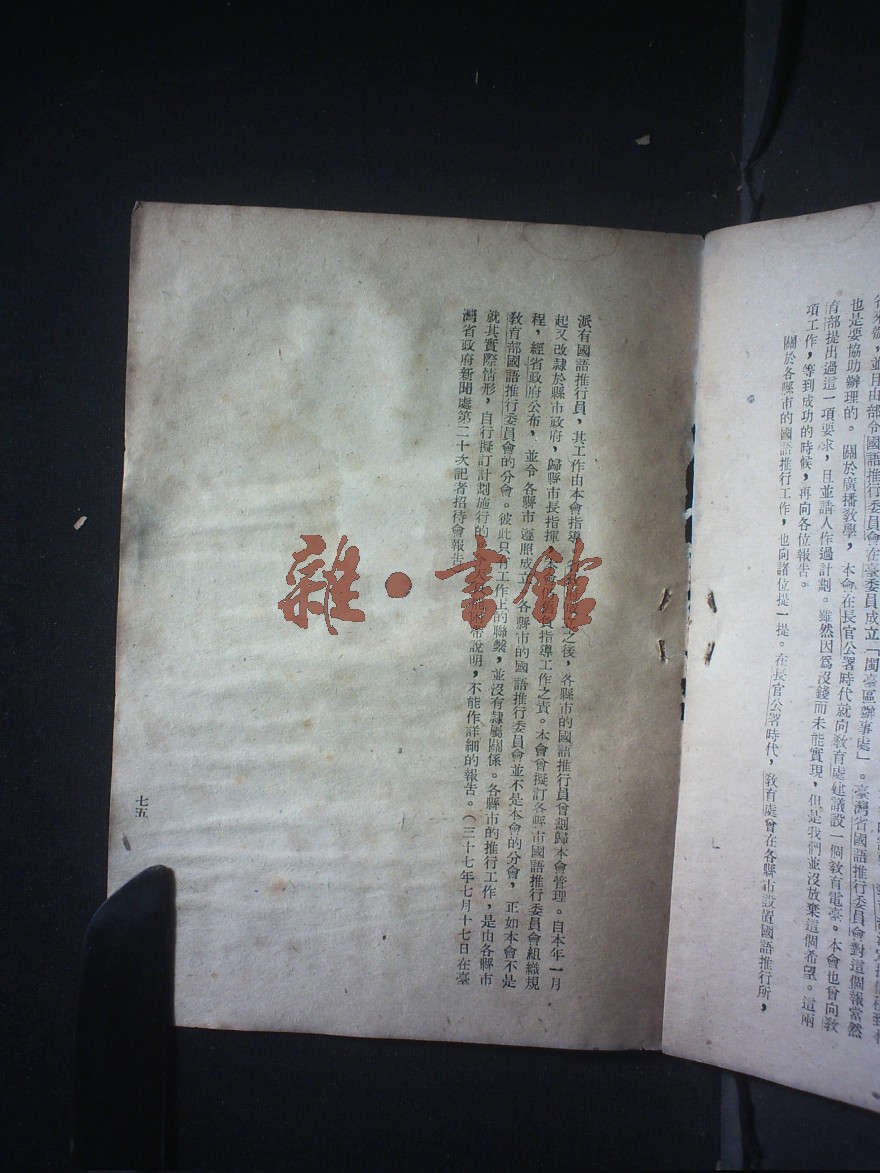 也是要協助辦理的。關於廣播教學，本會在長官公署時代就向教育處建議設一個教育電臺。本會也曾向教
育部提出過這一項要求，且並請人作過計劃。雖然因爲沒錢而未能實現，但是我們並沒放棄這個希望。這兩
項工作，等到成功的時候，再向各位報告。
關於各縣市的國語推行工作，也向諸位提一提。在長官公署時代，教育處曾在各縣市設置國語推行所，
派有國語推行員，其工作由本會指導。之後，各縣市的國語推行員會劃歸本會管理。自本年一月
起又改隸於縣市政府，歸縣市長指揮，本會指導工作之責。本會曾擬訂各縣市國語推行委員會組織規
程，經省政府公布，並令各縣市遵照成立。各縣市的國語推行委員會並不是本會的分會，正如本會不是
教育部國語推行委員會的分會。彼此只有工作上的聯繫，並沒有隸屬關係。各縣市的推行工作，是由各縣市
就其實際情形，自行擬訂計劃施行的，說明，不能作詳細的報告。（三十七年七月十七日在臺
灣省政府新聞處第二十次記者招待會報告
七五
雜·書館